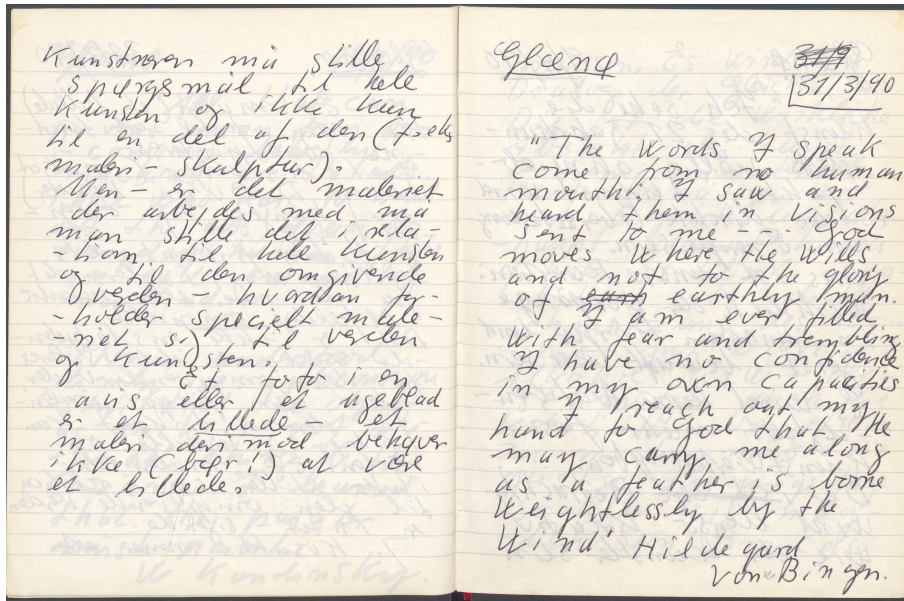 Kunstneren må stille
spørgsmål til hele
kunsten og ikke kun
til en del af den (f.eks
maleri - skulptur).
Men - er det maleriet
der arbejdes med må
man stille det i rela-
-tion til hele kunsten
og til den omgivende
verden - hvordan for-
-holder specielt male-
-riet sig til verden
og kunsten.
Et foto i en
avis eller et ugeblad
er et billede - et
maleri derimod behøver
ikke (bør!) at være
et billede.
Glænø
31/3/90
"The Words I speak
come from no human
mouth; I saw and
heard them in visions
sent to me --- God
moves where He wills
and not to the glory
of earthly man.
I am ever filled
with fear and trembling
I have no confidence
in my own capacities
I reach out my
hand to God that He
may carry me along
as a feather is borne
weightlessly by the
wind' Hildegard
von Bingen.
W Kandinsky.